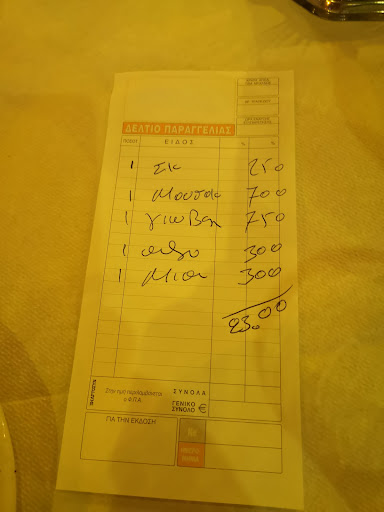 ΔΕΛΤΙΟ ΠΑΡΑΓΓΕΛΙΑΣ
ΕΙΔΟΣ
1 Σκ 250
1 Μουσακ 700
1 γιουβετ 750
1 300
1 Μπυ 300
23.00
Στην τιμή περιλαμβάνεται
ο Φ.Π.Α.
ΣΥΝΟΛΑ
ΓΕΝΙΚΟ
ΣΥΝΟΛΟ €
ΓΙΑ ΤΗΝ ΕΚΔΟΣΗ